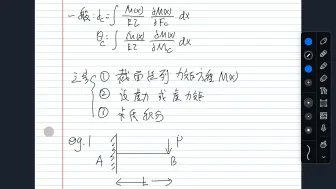 一般: δc = ∫ M(x)/EI ∂M(x)/∂Fc dx
θc = ∫ M(x)/EI ∂M(x)/∂Mc dx
① 截面 力矩方程 M(x)
② 设虚力 或 虚力矩
③ 卡氏积分
eg.1
P
A B
L